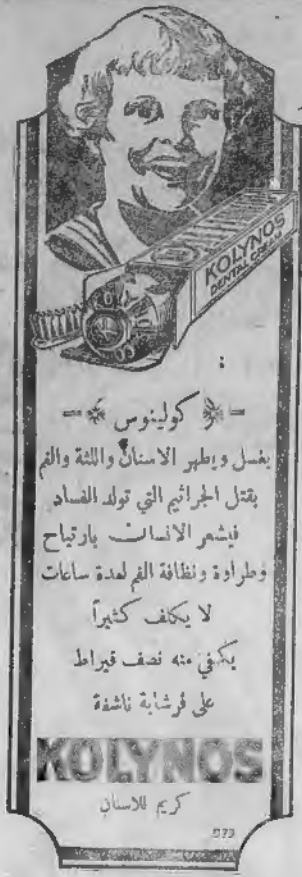 KOLYNOS
DENTAL CREAM
كولينوس
يغسل ويطهر الاسنان واللثة والفم
يقتل الجراثيم التي تولد الفساد
فيشعر الانسان بارتياح
وطراوة ونظافة الفم لعدة ساعات
لا يكلف كثيراً
يكفي منه نصف قيراط
على فرشاية ناشفة
KOLYNOS
كريم للاسنان